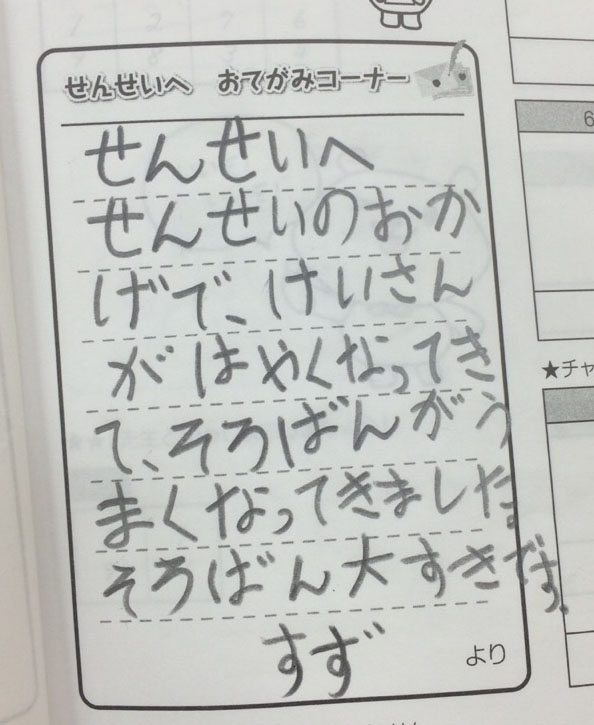 せんせいへ おてがみコーナー
せんせいへ
せんせいのおか
げで、けいさん
がはやくなってき
て、そろばんがう
まくなってきました
そろばん大すきです。
すず
より
6
★チャ